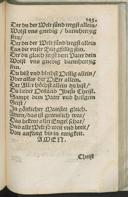 Der du der Welt sünd tregst allein/
Wölst uns gnedig / barmhertzig
sein.
Der du der Welt sünd tregst allein
Der du der Welt sünd
Der du gleich sitzst dem Vater dein
Wölst uns gnedig barmhertzig
sein.
Du bist und bleibst Heilig allein/
Uber alles der HErr allein.
Der Aller höchst allein du bist/
Du lieber Heiland Jhesu Christ.
Sampt dem Vater und heiligen
Geist/
In göttlicher Maiestet gleich.
Amen/ das ist gewislich war/
Das bekent aller Engel schar/
Und alle Welt so weit und breit/
Von anfang bis in ewigkeit.
AMEN.
Christ